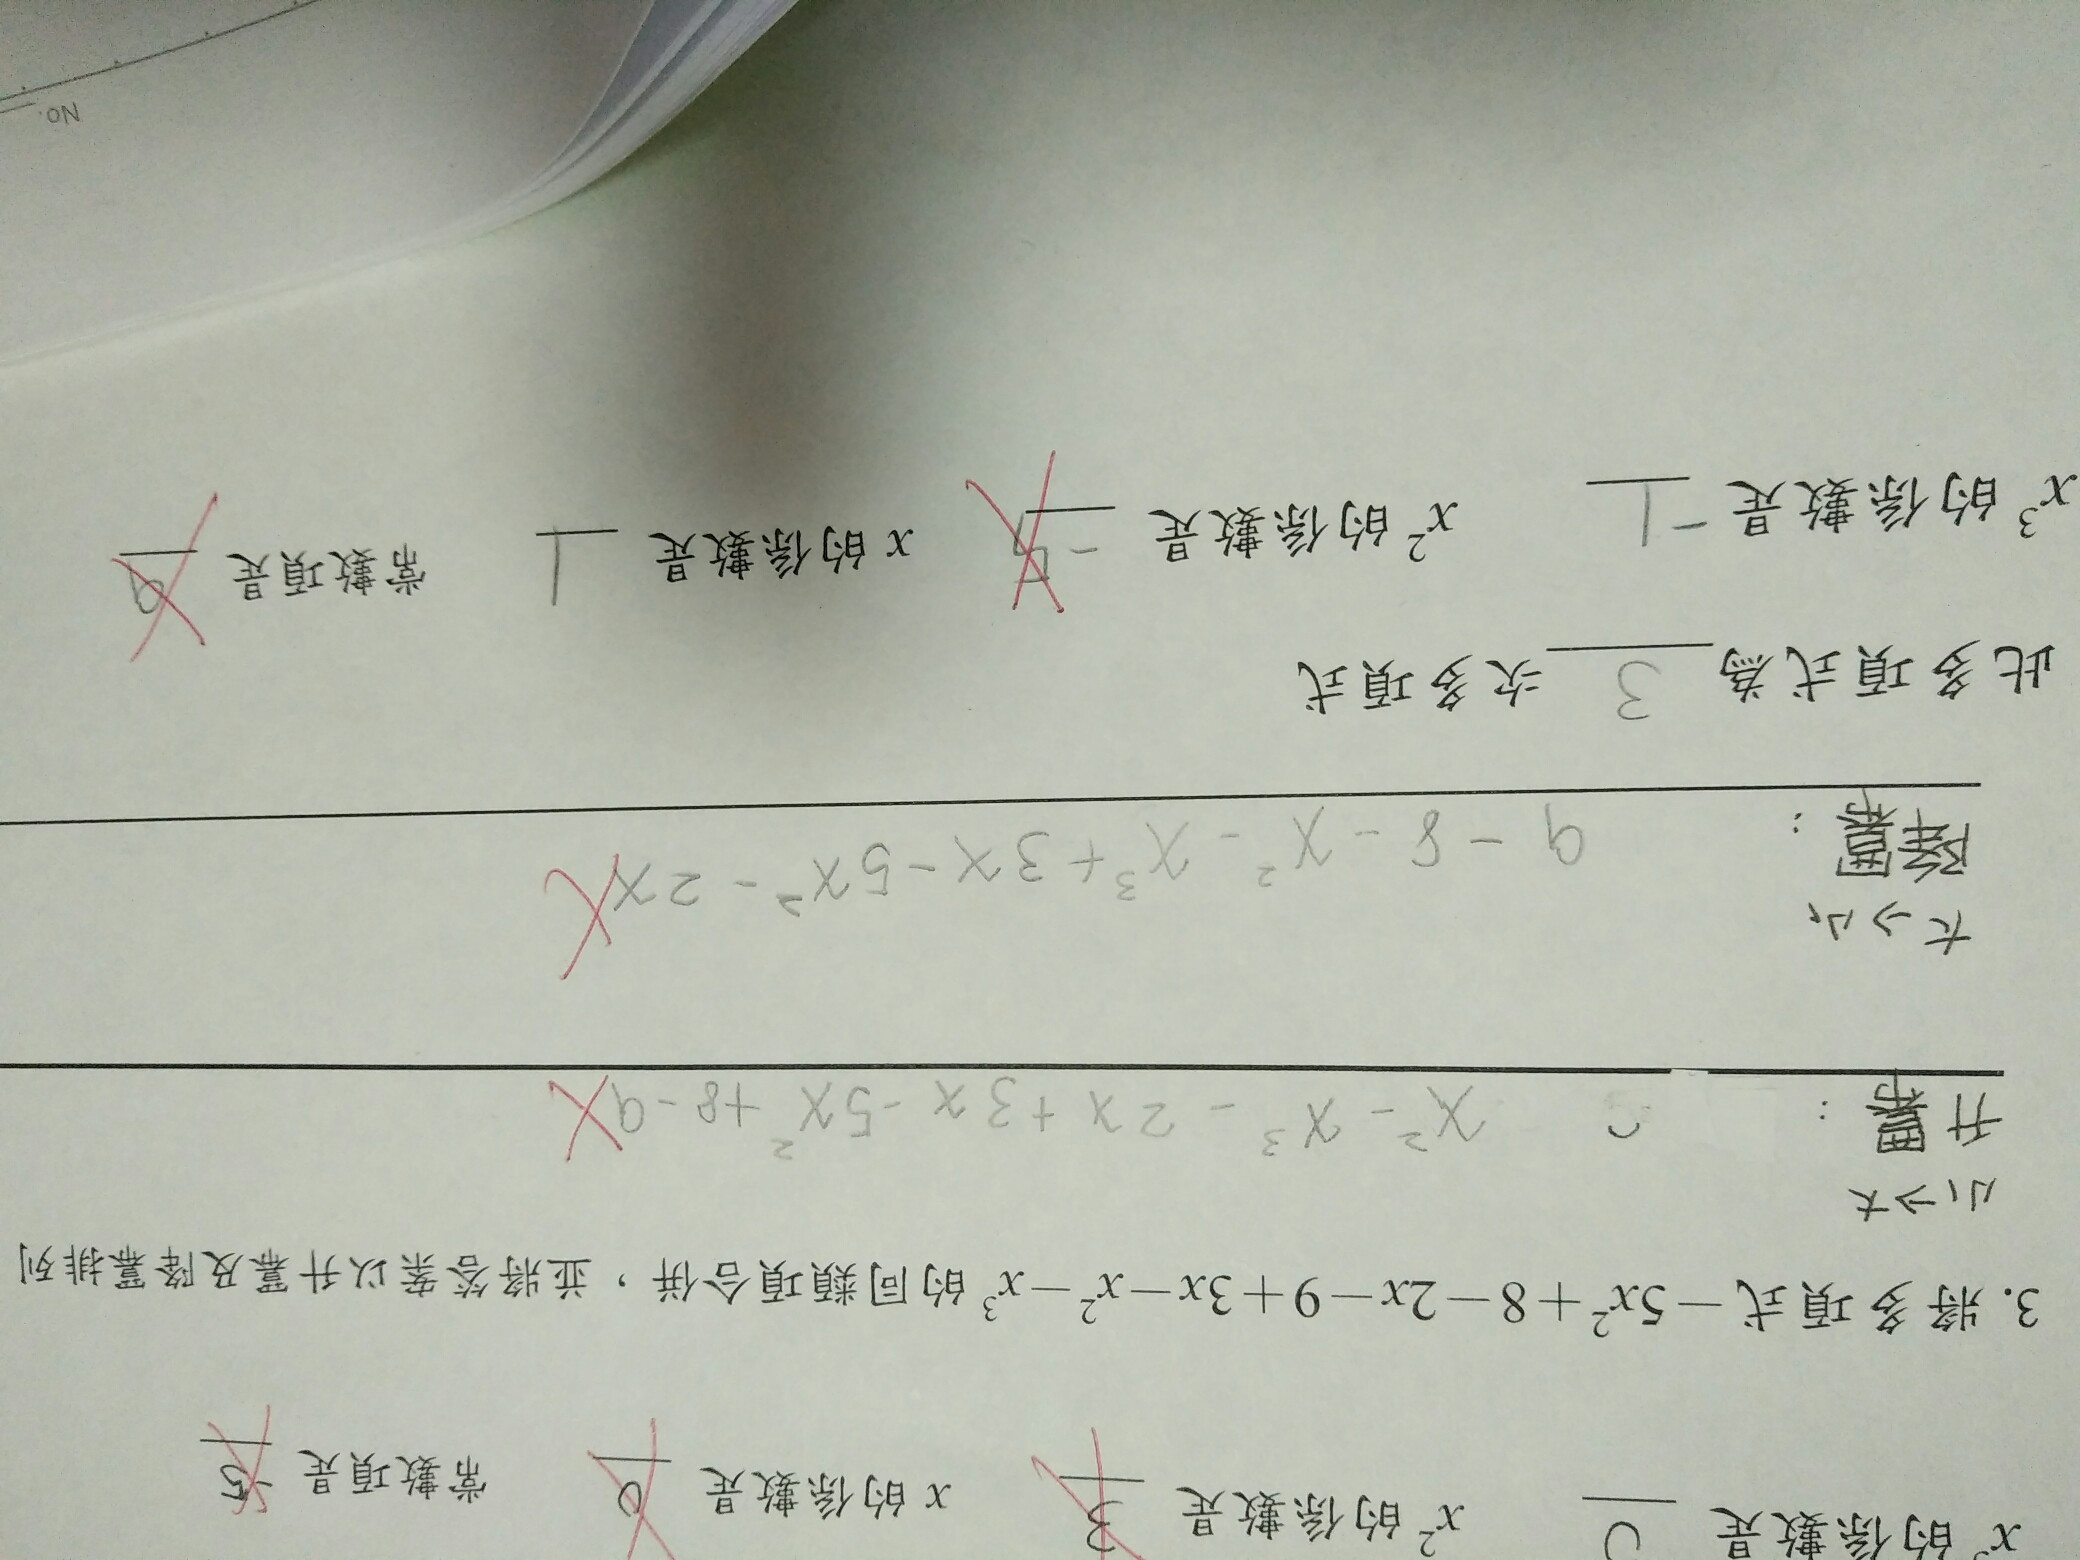 x³的係數是 0 x²的係數是 3 x的係數是 0 常數項是 -5
3. 將多項式 −5x²+8−2x−9+3x−x²−x³ 的同類項合併，並將答案以升冪及降冪排列
小→大
升冪： x² - x³ - 2x + 3x - 5x² + 8 - 9
大→小
降冪： 9 - 8 - x² - x³ + 3x - 5x² - 2x
此多項式為 3 次多項式
x³的係數是 -1 x²的係數是 x的係數是 1 常數項是 9
No.